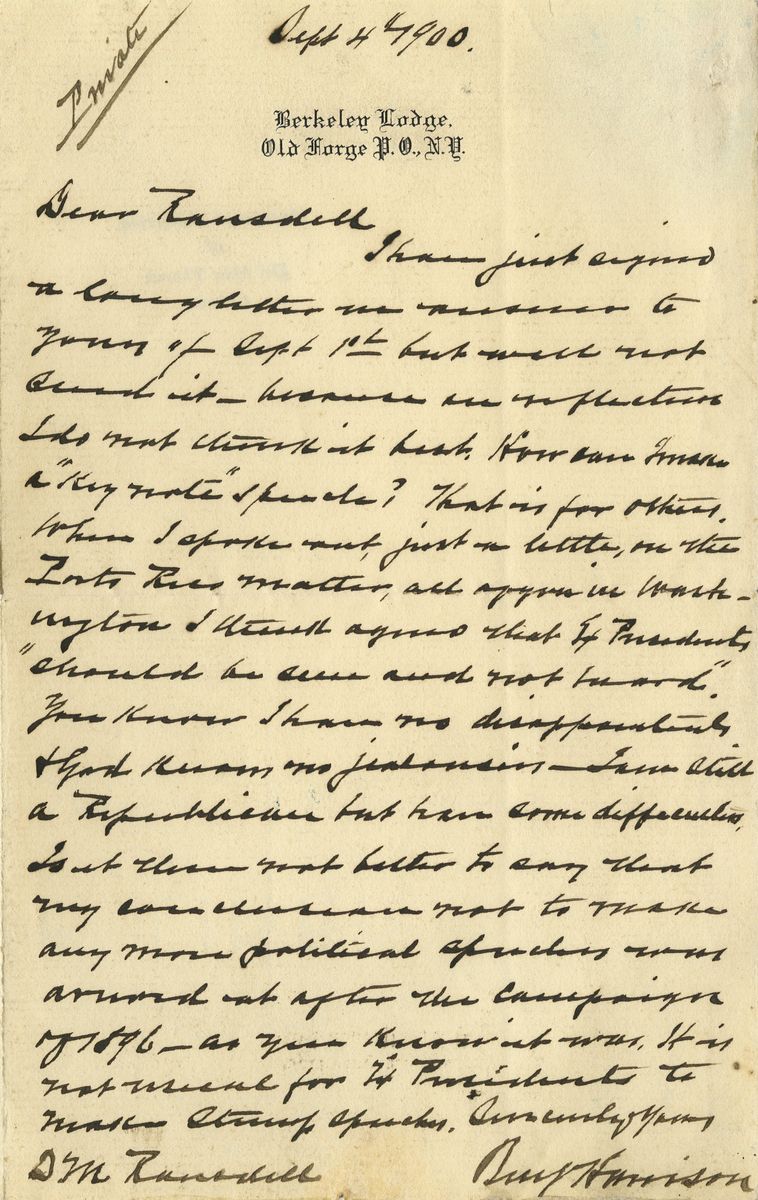 Private
Sept 4th 1900.
Berkeley Lodge.
Old Forge P.O., N.Y.
Dear Ransdell
I have just signed
a long letter in answer to
yours of Sept 1st but will not
send it — because on reflection
I do not think it best. How can I make
a "Key note" speech? That is for others.
When I spoke out, just a little, on the
Porto Rico matter, all of you in Wash-
ington I think agreed that Ex Presidents
"should be seen and not heard".
You know I have no disappointments
& God knows no jealousies — I am still
a Republican but have some difficulties.
Is it then not better to say that
my conclusion not to make
any more political speeches was
arrived at after the campaign
of 1896 — as you know it was. It is
not usual for Ex Presidents to
make stump speeches. Sincerely Yours
D M Ransdell Benj Harrison